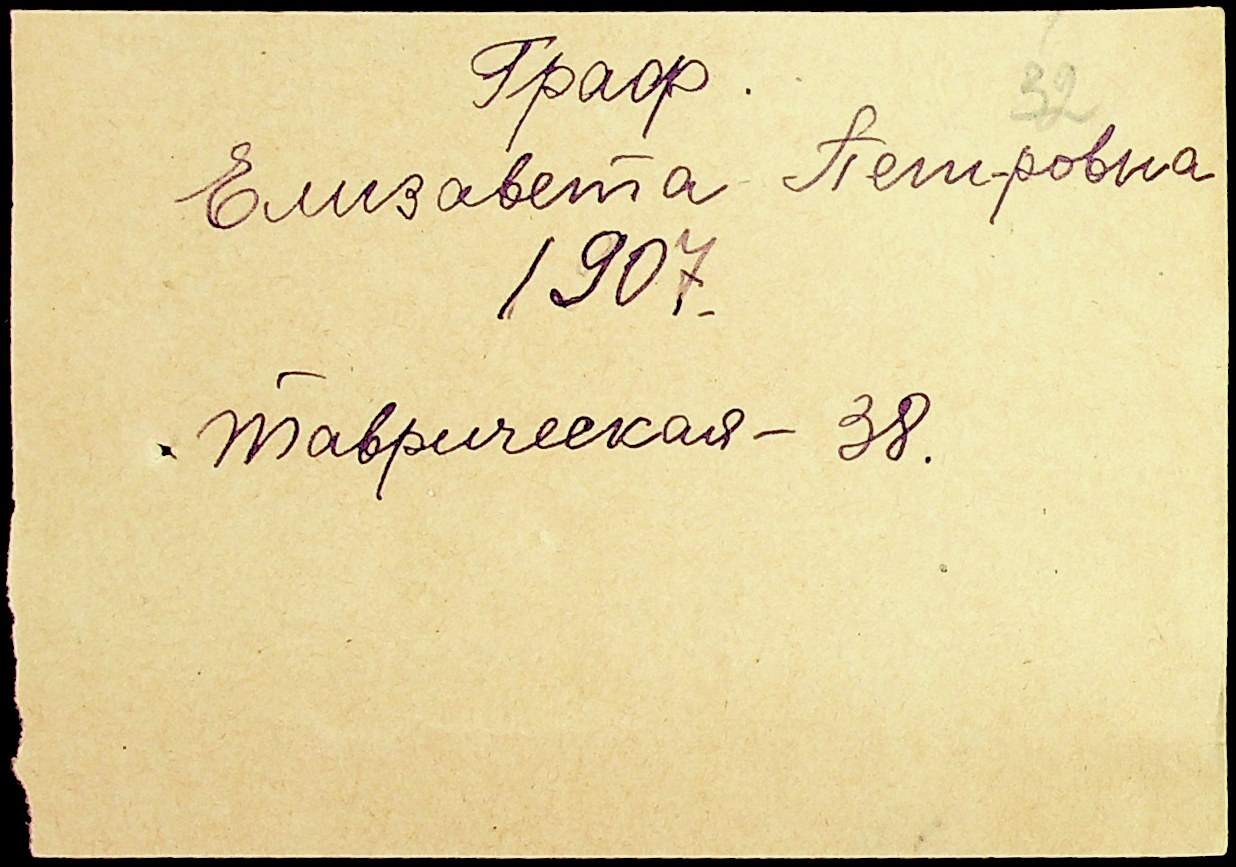 32
Граф.
Елизавета Петровна
1907.
Таврическая – 38.